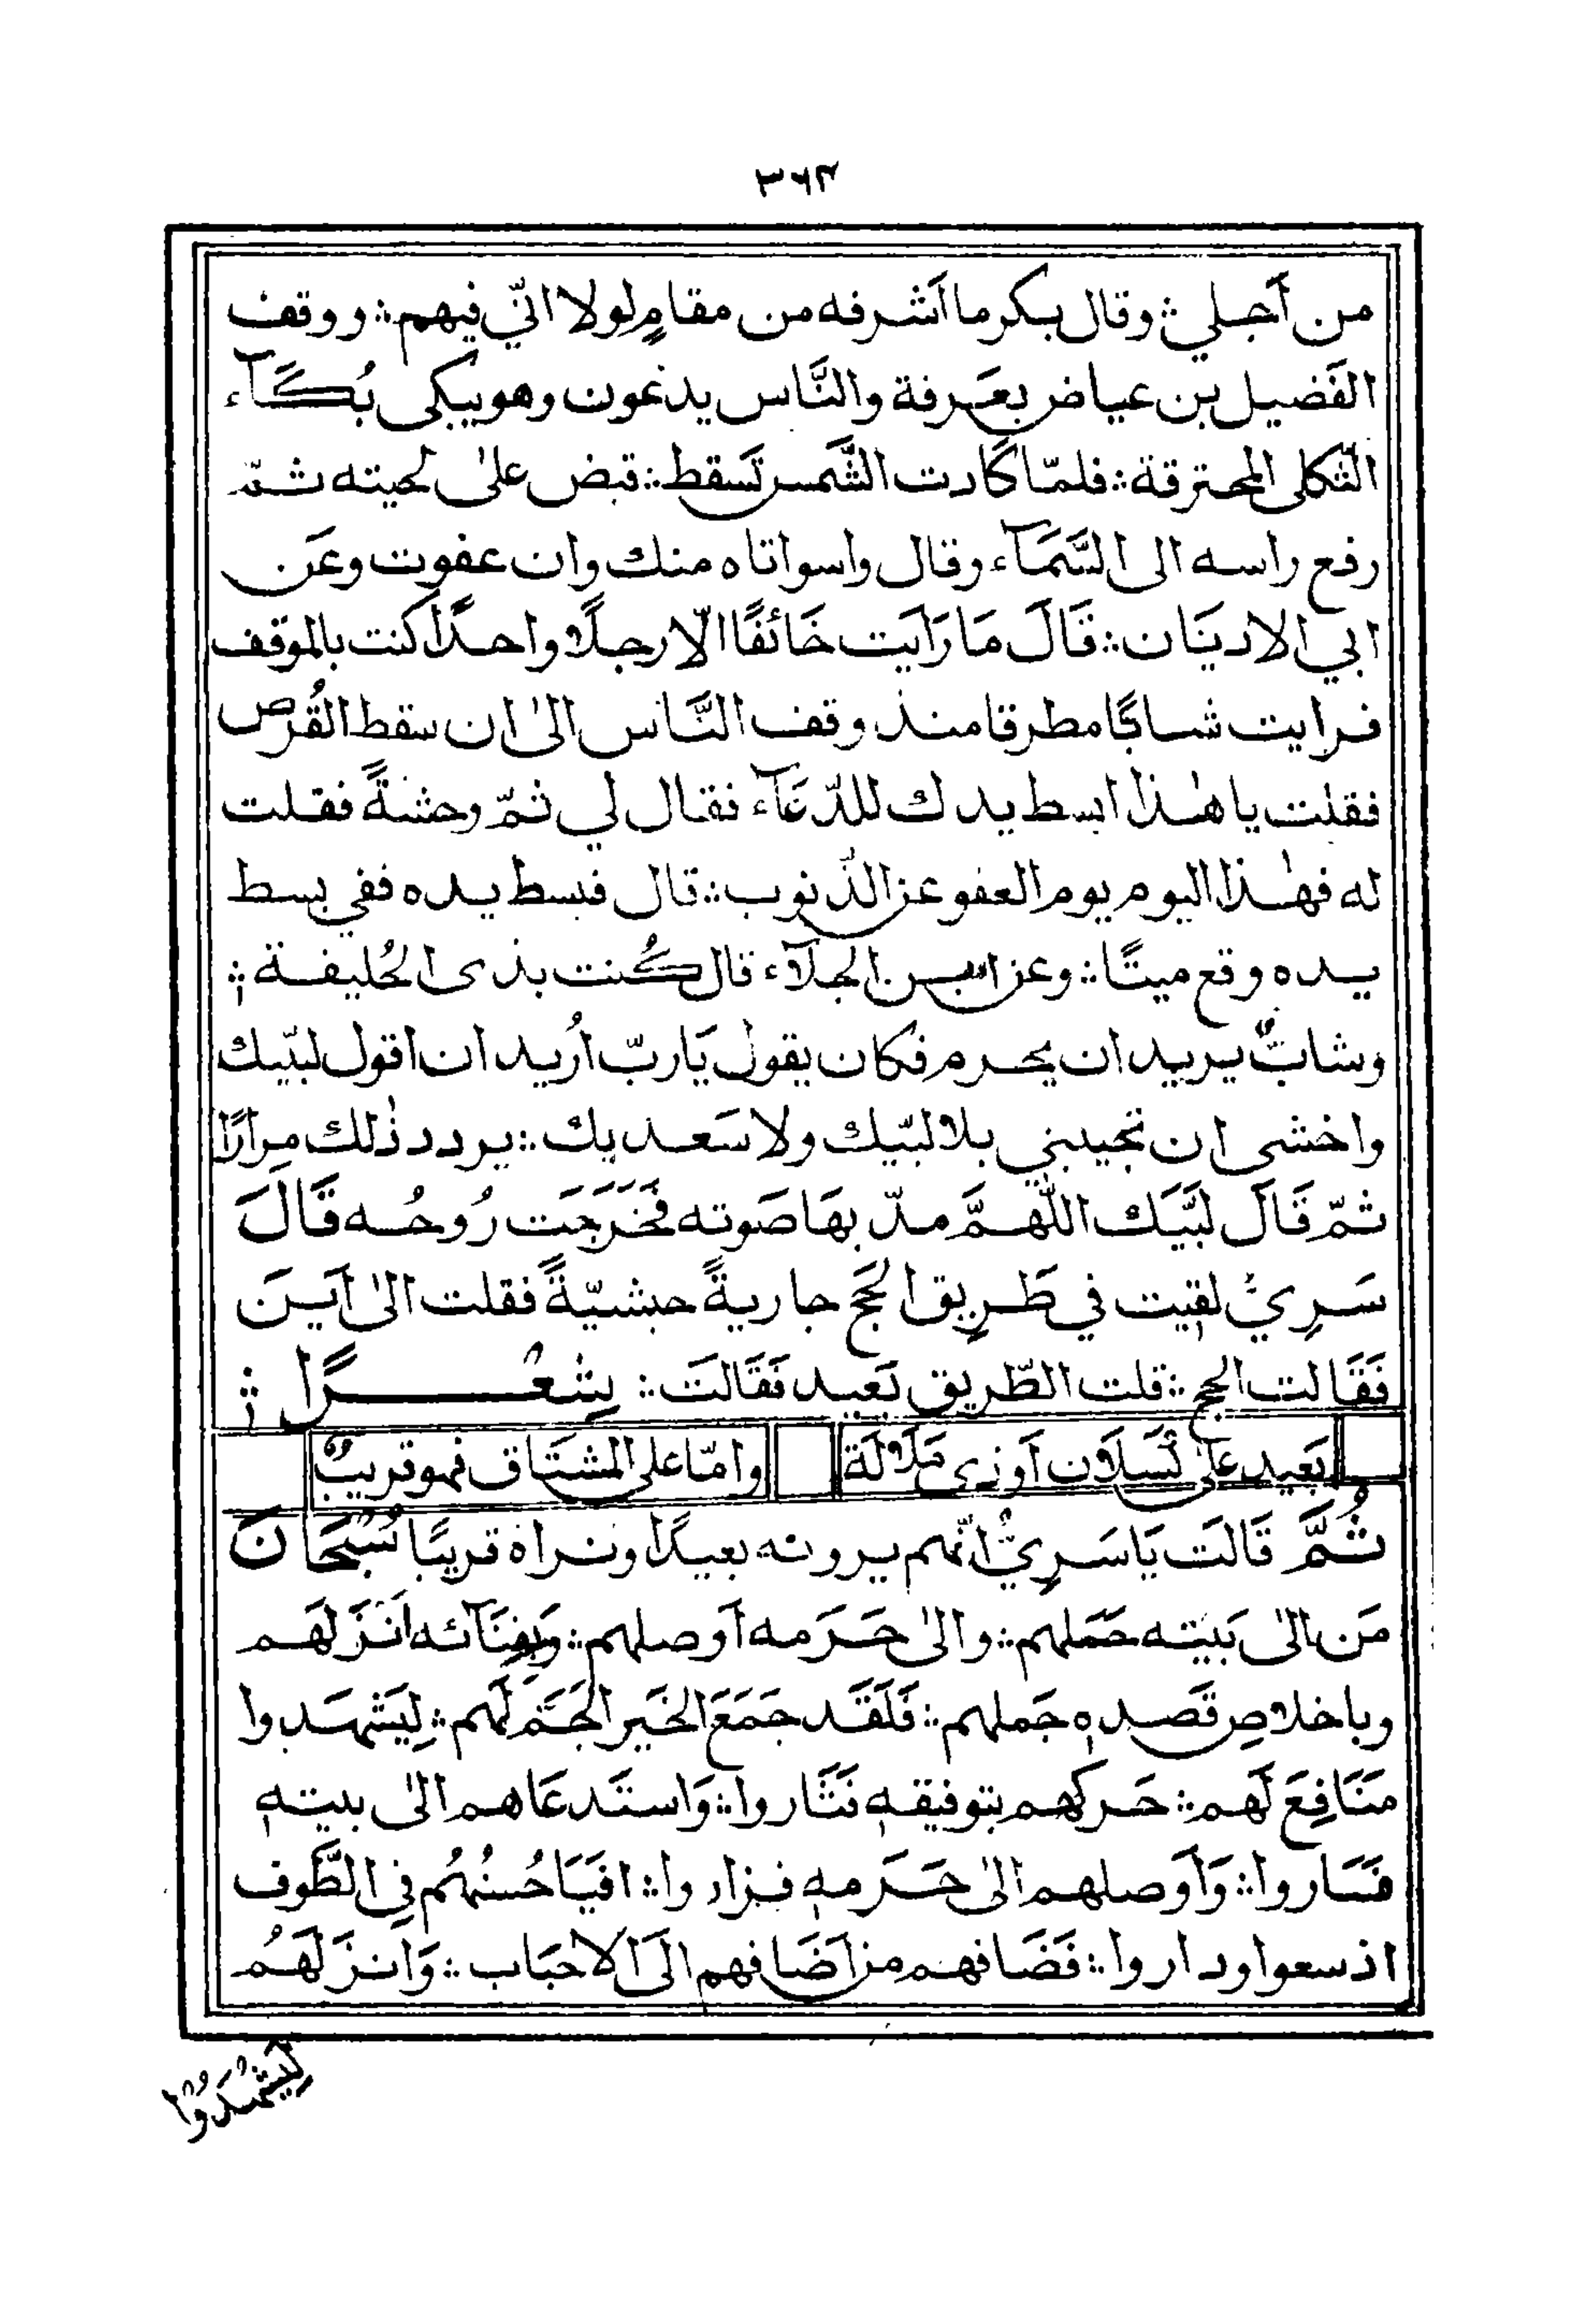 ٣٦٢
من أَجلي ؞ وقال بكر ما اَشرفه من مقامٍ لولا انّي فيهم ؞ ووقف
الفَضيل بن عياض بعَرفة والنَّاس يدعون وهو يبكى بُكَآء
الثّكلى المحترقة ؞ فلمّا كَادت الشَّمس تَسقط ؞ قبض علىٰ لحيته ثمّ
رفع راسه الى السَّمَآء وقال واسواتاه منك وان عفوت وعَن
ابي الاديَان ؞ قَالَ مَا رَاَيت خَائفًا الّا رجلًا واحدًا كنت بالموَقف
فرايت شابًّا مطرقا منذ وقف النَّاس الىٰ ان سقط القُرص
فقلت يا هٰذا ابسط يدك للدّعَآء فقال لي ثمّ وحشةً فقلت
له فهٰذا اليوم يوم العفو عن الذّنوب ؞ قال فبسط يده ففي بسط
يده وقع ميتًا ؞ وعن ابن الجلَآء قال كُنت بذى الحُليفة ؞
وشابٌّ يريد ان يحرم فكان يقول يَا ربّ اُريد ان اقول لبّيك
واخشى ان تجيبني بلا لبّيك ولا سَعديك ؞ يردد ذٰلك مِرارًا
ثمّ قَالَ لبَّيَك اللّٰهمَّ مدّ بهَا صَوته فَخَرَجَت رُوحُه قَالَ
سَرِيّ لقيت في طَرِيق الحَجّ جاريةً حبشيّةً فقلت الىٰ اَيَنَ
فَقَالت الحج ؞ قلت الطّريق بَعيد فَقَالتَ ؞ شِعْرًا ؞
بَعيد علىٰ كَسلَان اَو ذى مَلَالَة وامّا على المشتَاق فهو قريبٌ
ثُمَّ قَالَت يَا سَرِيُّ انّهم يرونه بعيدًا ونراه قريبًا سُبْحَانَ
مَن الىٰ بَيته حَمَلهم ؞ والىٰ حَرَمه اَوصلهم ؞ وَبفِنَآئه اَنزَلَهَم
وباخلاصِ قَصده جَملهم ؞ فَلَقَد جَمَعَ الخَير الجَمَّ لَهم ؞ لِيَشهَدوا
مَنَافِعَ لَهم ؞ حَركهم بتوفيقه فَثَاروا ؞ وَاستَدعَاهم الىٰ بيته
فسَاروا ؞ وَاَوصلهم الىٰ حَرَمه فزاروا ؞ افَيَا حُسنُهُم فِي الطَّوف
اذ سعوا وداروا ؞ فَضَافهم من اَضَافهم الَى الاحبَاب ؞ وَانزَلَهَمُ
لِيَشْهَدُوْا